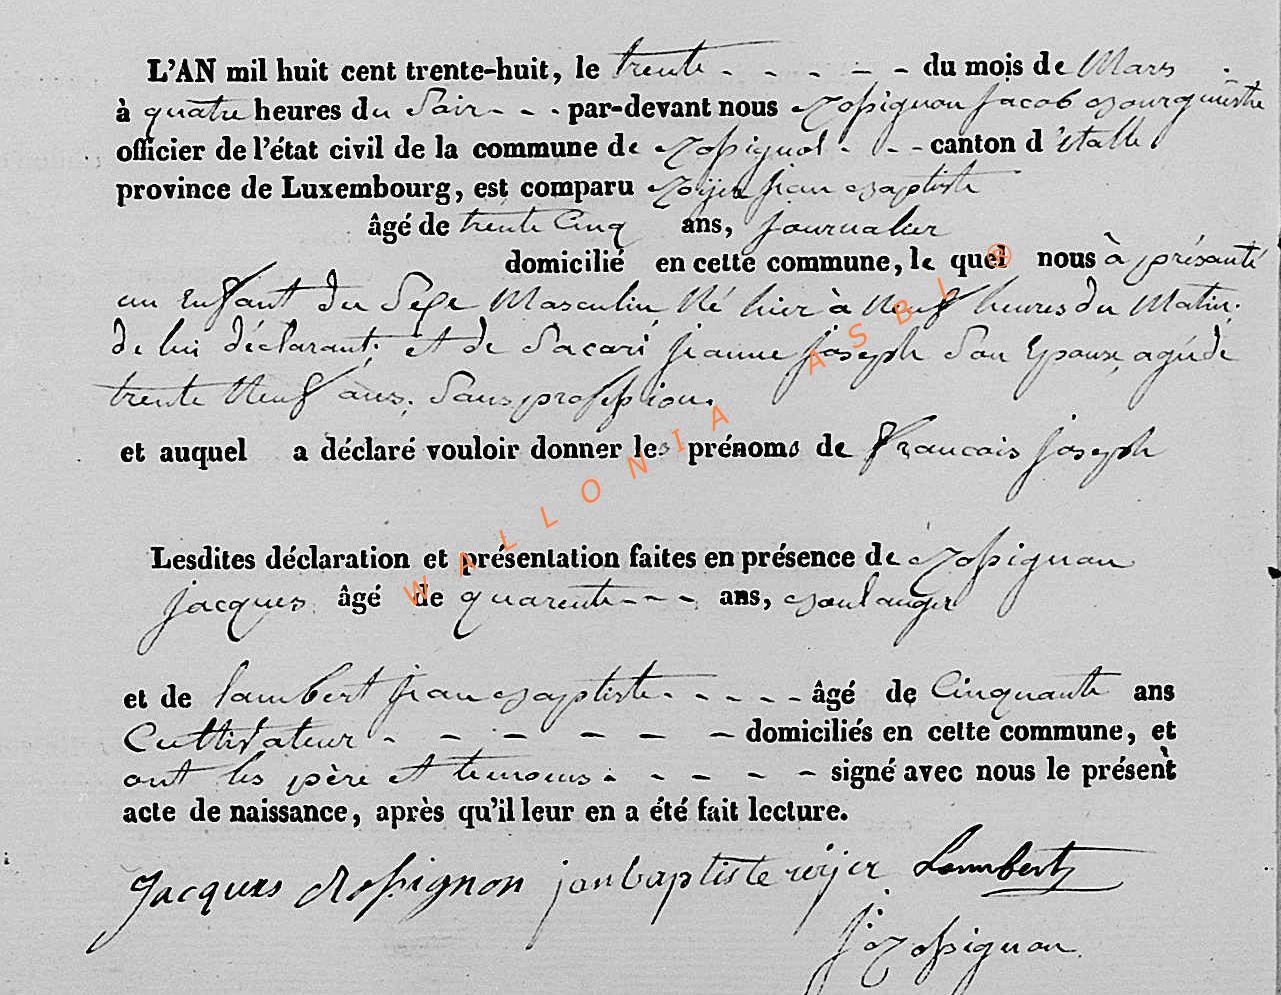 L'AN mil huit cent trente-huit, le trente - - - - - du mois de Mars
à quatre heures du Soir - - - par-devant nous Rossignon Jacob Bourgumestre
officier de l'état civil de la commune de Rossignol - - - canton d'étalle
province de Luxembourg, est comparu Roijer jean Baptiste
âgé de trente Cinq ans, journalier
domicilié en cette commune, le quel nous à présanté
un Enfant du Sexe Masculin, Né hier à Neuf heures du Matin,
de lui déclarant, et de Sacari jeanne joseph Son Epouse, agéé dé
trente Neuf ans, Sans profession.
et auquel a déclaré vouloir donner les prénoms de Francois joseph
Lesdites déclaration et présentation faites en présence de Rossignon
jacques âgé de quarente - - - ans, Boulanger
et de lambert jean Baptiste - - - - - âgé de Cinquante ans
Cultivateur - - - - - - domiciliés en cette commune, et
ont les père et temoins - - - - - signé avec nous le présent
acte de naissance, après qu'il leur en a été fait lecture.
Jacques Rossignon janbaptiste roijer Lambert
J. Rossignon
WALLONIA ASBL ®